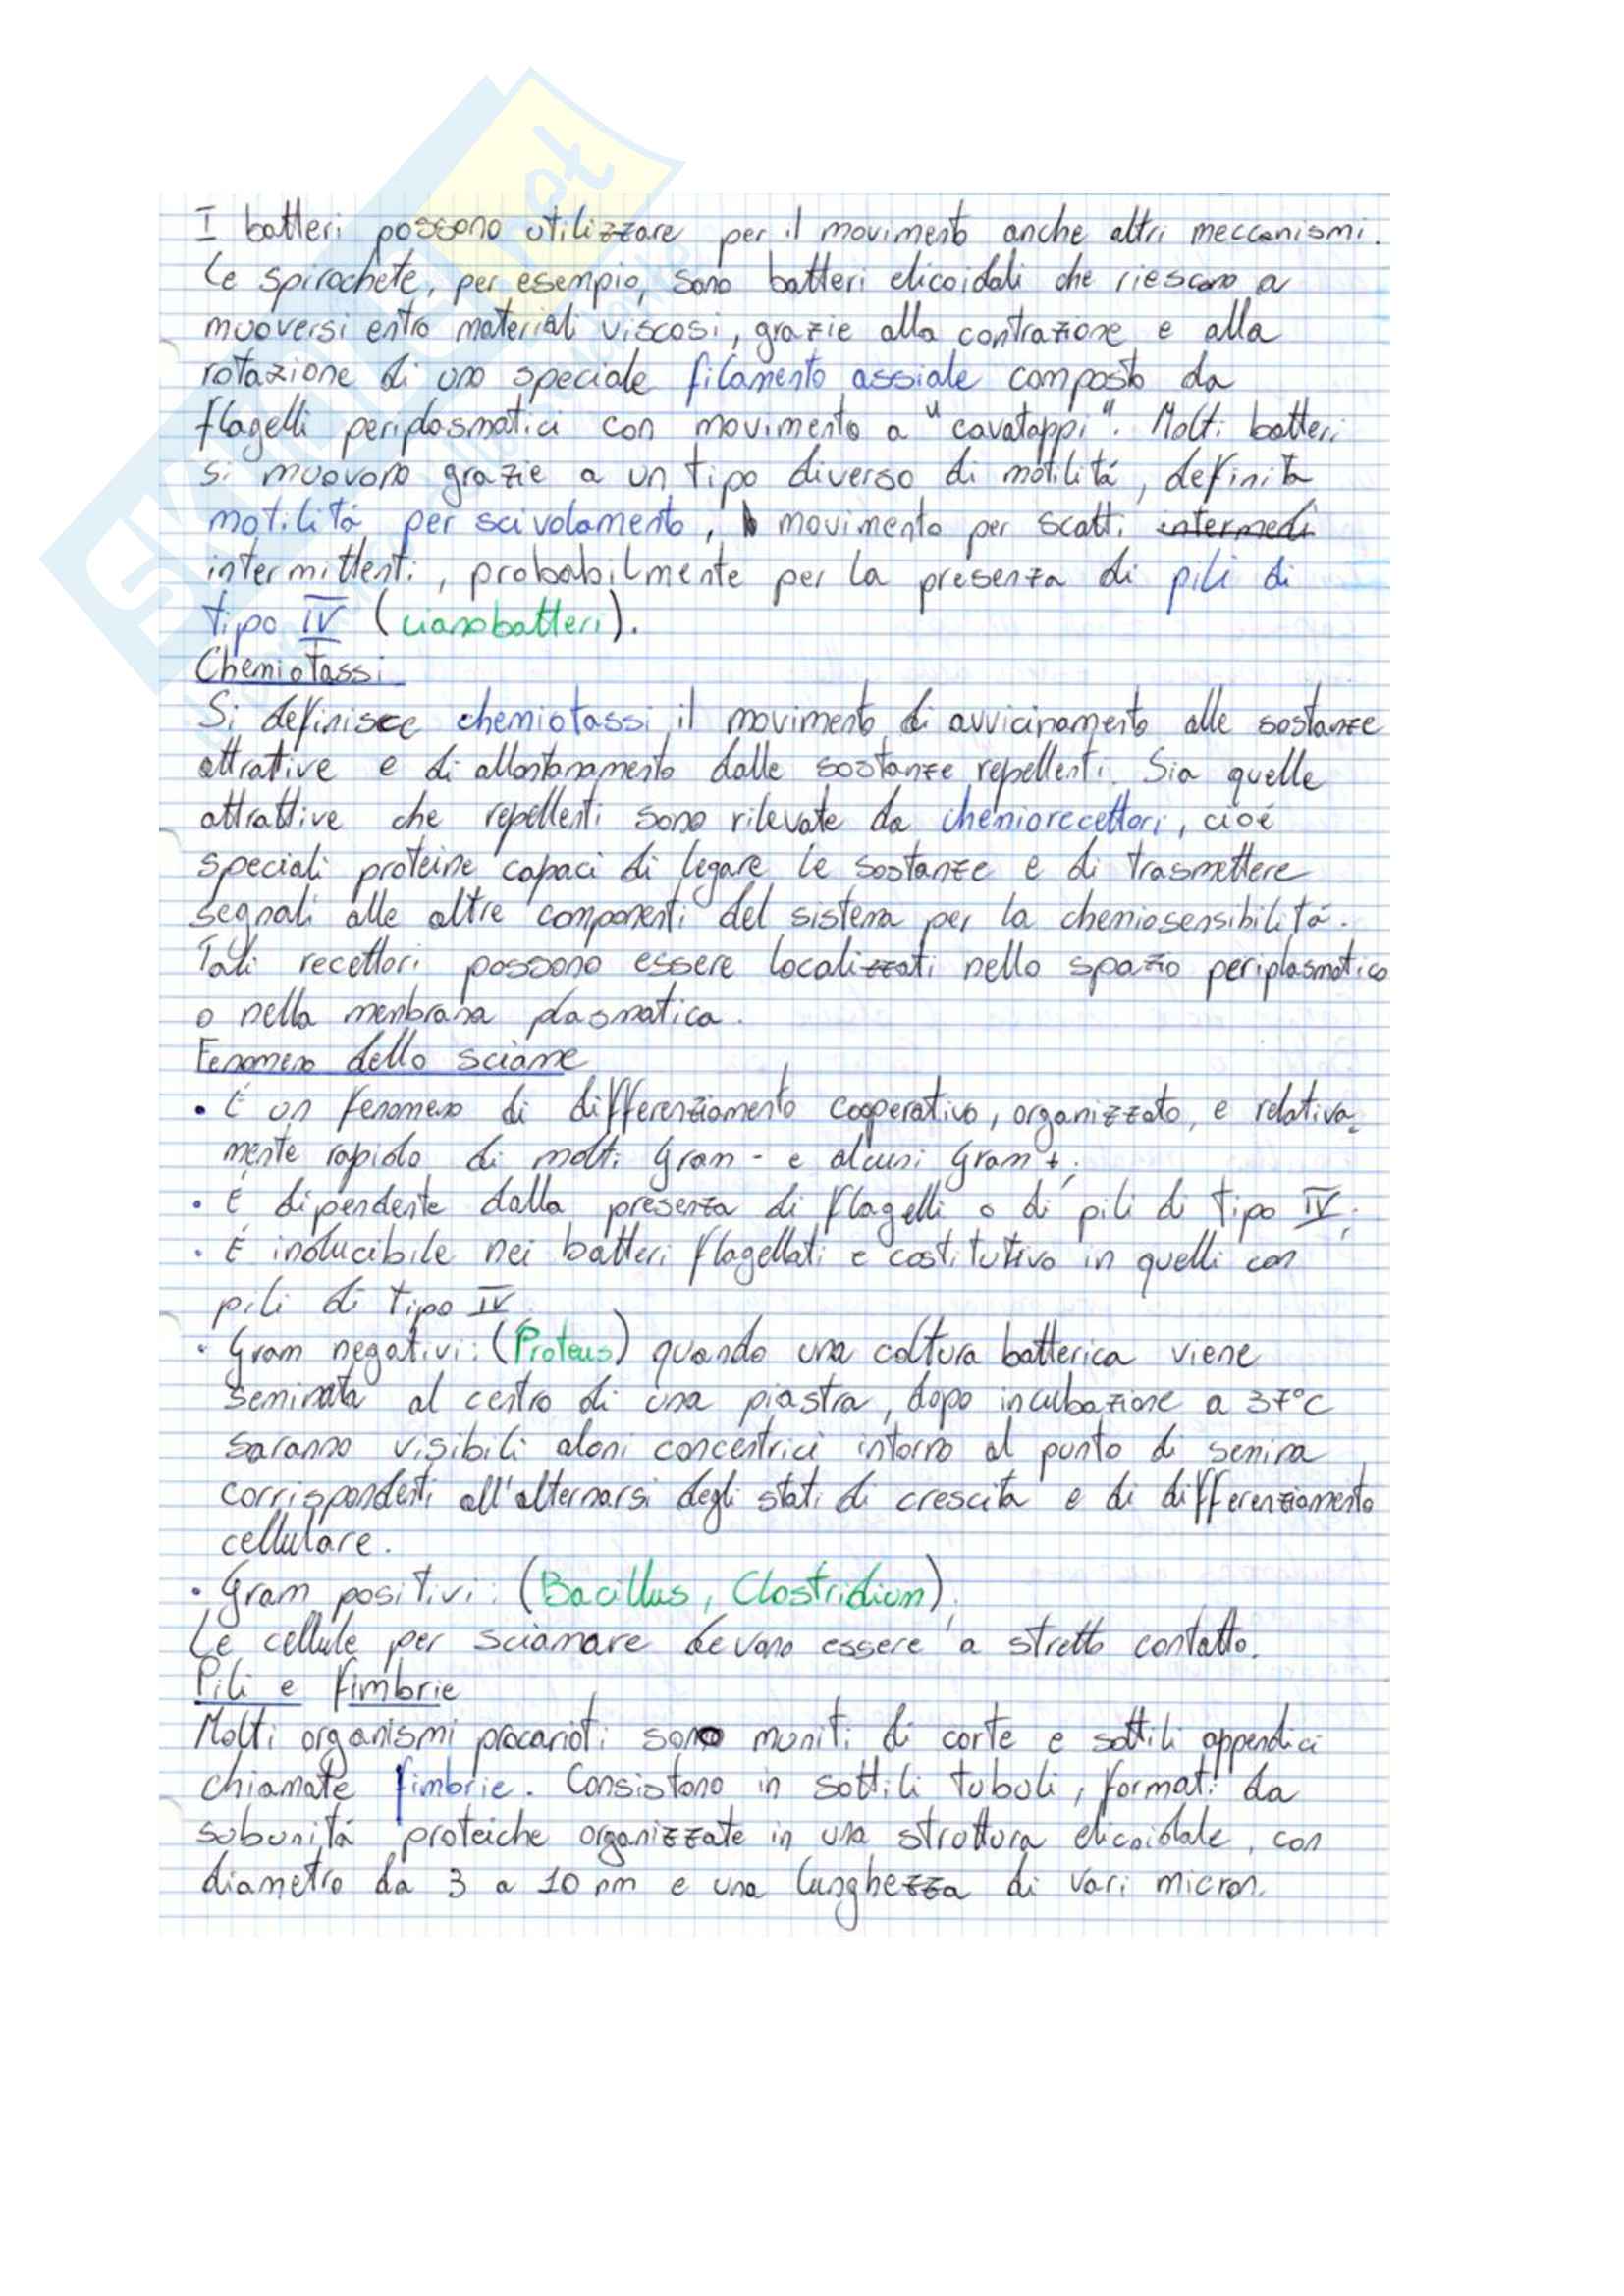 I batteri possono utilizzare per il movimento anche altri meccanismi.
Le spirochete, per esempio, sono batteri elicoidali che riescono a
muoversi entro materiali viscosi, grazie alla contrazione e alla
rotazione di uno speciale filamento assiale composto da
flagelli periplasmatici con movimento a "cavatappi". Molti batteri
si muovono grazie a un tipo diverso di motilitá, definita
motilitá per scivolamento, movimento per scatti intermedi
intermittenti, probabilmente per la presenza di pili di
tipo IV (cianobatteri).
Chemiotassi
Si definisce chemiotassi il movimento di avvicinamento alle sostanze
attrattive e di allontanamento dalle sostanze repellenti. Sia quelle
attrattive che repellenti sono rilevate da chemiorecettori, cioé
speciali proteine capaci di legare le sostanze e di trasmettere
segnali alle altre componenti del sistema per la chemiosensibilitá.
Tali recettori possono essere localizzati nello spazio periplasmatico
o nella menbrana plasmatica.
Fenomeno dello sciame
• É un fenomeno di differenziamento cooperativo, organizzato, e relativa=
mente rapido di molti Gram - e alcuni Gram +;
• É dipendente dalla presenza di flagelli o di pili di tipo IV;
• É inducibile nei batteri flagellati e costitutivo in quelli con
pili di tipo IV.
• Gram negativi: (Proteus) quando una coltura batterica viene
seminata al centro di una piastra, dopo incubazione a 37°C
saranno visibili aloni concentrici intorno al punto di semina
corrispondenti all'alternarsi degli stati di crescita e di differenziamento
cellulare.
• Gram positivi: (Bacillus, Clostridium).
Le cellule per sciamare devono essere a stretto contatto.
Pili e fimbrie
Molti organismi procarioti sono muniti di corte e sottili appendici
chiamate fimbrie. Consistono in sottili tubuli, formati da
subunitá proteiche organizzate in una struttura elicoidale, con
diametro da 3 a 10 nm e una lunghezza di vari micron.